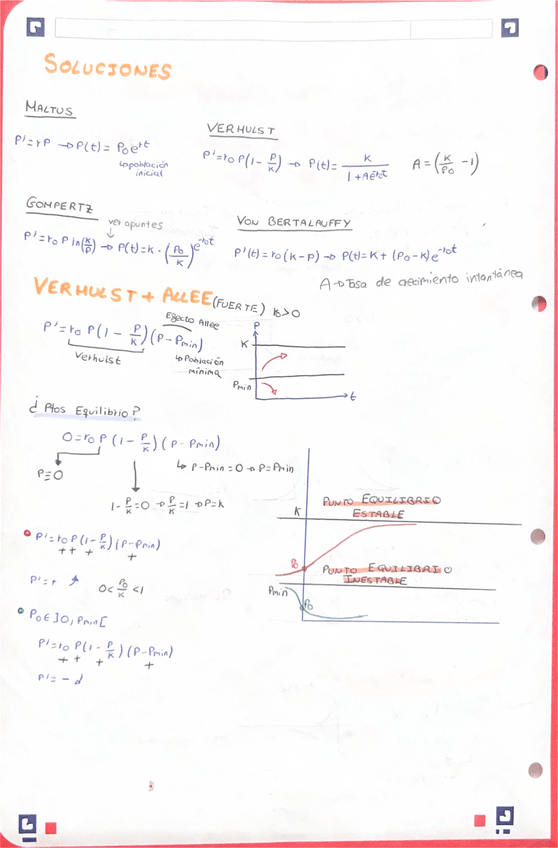 SOLUCIONES
MALTUS
P'=rP → P(t)= P₀e^rt
↳población
inicial
VERHULST
P'=r₀P(1-P/K) → P(t)= K/(1+Ae^-r₀t) A=(K/P₀ -1)
GOMPERTZ
ver apuntes
↓
P'=r₀ P ln(K/P) → P(t)=K·(P₀/K)^e^-r₀t
VON BERTALAUFFY
P'(t)=r₀(K-P) → P(t)=K+(P₀-K)e^-r₀t
A→Tasa de crecimiento intantánea
VERHULST + ALLEE (FUERTE) r₀>0
Efecto Allee
P'=r₀ P(1-P/K)(P-Pmin)
Verhulst
↳Población
mínima
P
K
Pmin
t
¿Ptos Equilibrio?
0=r₀ P(1-P/K)(P-Pmin)
↳ P-Pmin=0 → P=Pmin
P=0
1-P/K=0 → P/K=1 → P=K
K
PUNTO EQUILIBRIO
ESTABLE
P₀
PUNTO EQUILIBRIO
INESTABLE
Pmin
P₀
P'=r₀ P(1-P/K)(P-Pmin)
+ + + +
P'=+ ↗ 0<P₀/K<1
P₀∈]0,Pmin[
P'=r₀ P(1-P/K)(P-Pmin)
+ + + +
P'= -